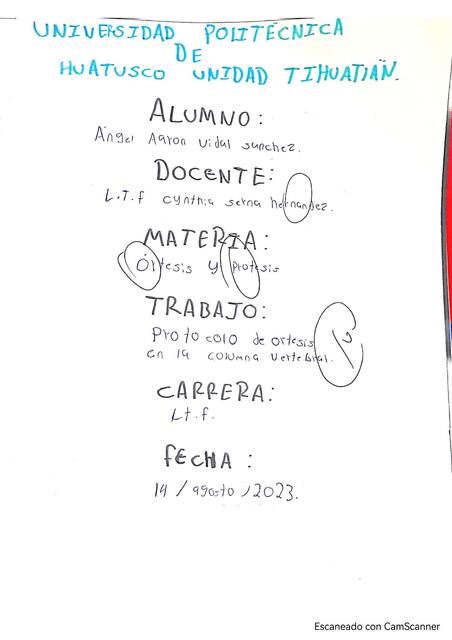 UNIVERSIDAD POLITÉCNICA
DE
HUATUSCO UNIDAD TIHUATLÁN.
ALUMNO:
Ángel Aaron Vidal sanchez.
DOCENTE:
L.T.f cynthia serna hernandez.
MATERIA:
Órtesis y protesis
TRABAJO:
Protocolo de ortesis
en la columna vertebral.
CARRERA:
Lt.f.
fECHA :
14 / agosto / 2023.
Escaneado con CamScanner